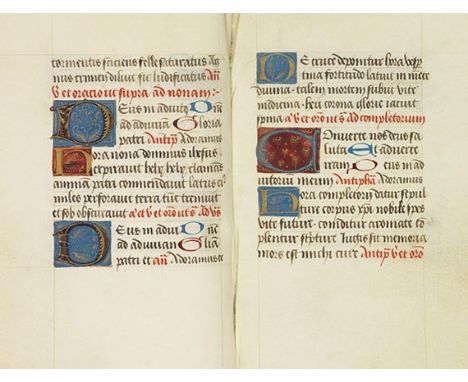 tormentis sciens felle saturatus Ag
nus crimen diluit sic ludificatus An
V et oratio ut supra ad nonam :
Deus in adiuto One
ad adiuvan Gloria
patri Antiph Adoramus
Hora nona dominus ihesus
expiravit hely hely clamitās
animā patri commendavit latus ei
miles perforavit terra tūc tremuit
et sol obscuravit a et v et oro ut s Ad vs
Deus in adiuto One
ad adiuvan Glia
patri et an Adoramus te
De cruce deponitur hora vesper
tina fortitudo latuit in mēte
divina talem mortem subiit vite
medicina heu corona glorie iacuit
spina a v et oro ut s ad completorium
Converte nos deus sa
luta et adverte
iram Deus in ad
iutoriū meum Antipha Adoramus
Hora completorii datur sepul
ture corpus xpi nobile spes
vite future conditur aromate cō
plentur scripture Iugis sit memoria
mors est michi cure Antiph v et oro